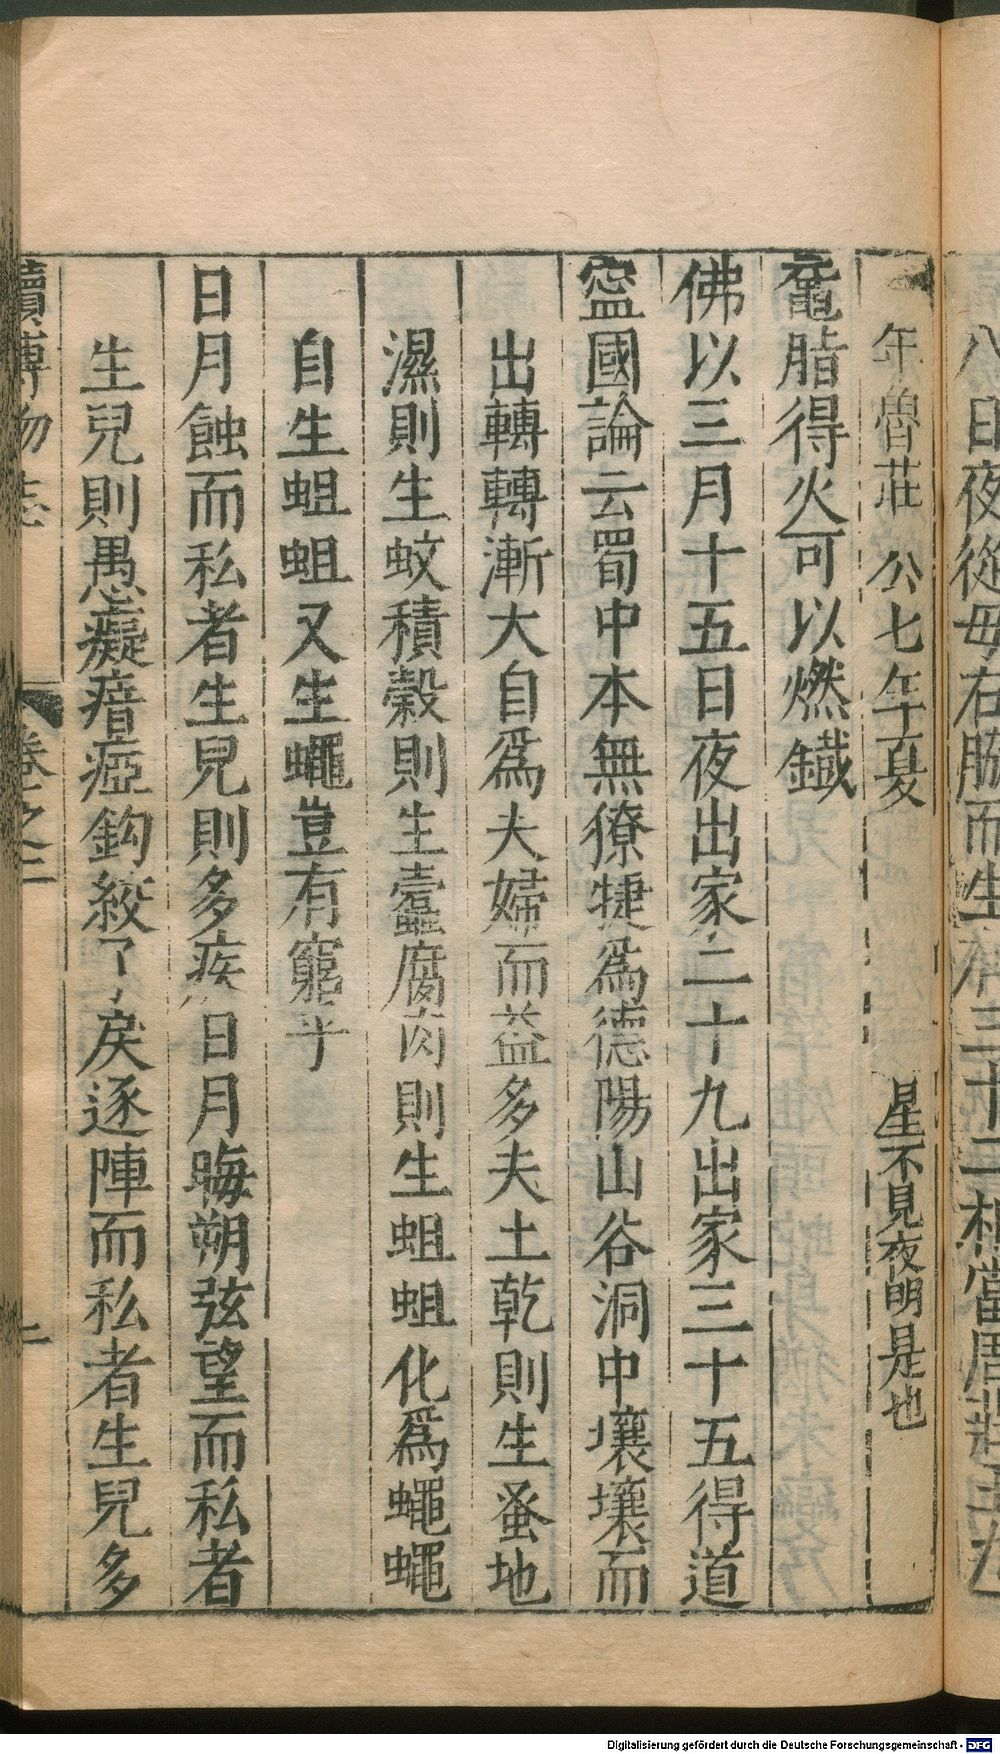 八日夜從母右脇而生有三十二相當周莊王九
年魯莊公七年夏星不見夜明是也
竈脂得火可以燃鐵
佛以三月十五日夜出家二十九出家三十五得道
寍國論云蜀中本無獠犍爲德陽山谷洞中壤壤而
出轉轉漸大自爲夫婦而益多夫土乾則生蚤地
濕則生蚊積穀則生蠹腐肉則生蛆蛆化爲蠅蠅
自生蛆蛆又生蠅豈有窮乎
日月蝕而私者生兒則多疾日月晦朔弦望而私者
生兒則愚癡瘖瘂鈎絞了戾逐陣而私者生兒多
續博物志 卷之二 二
Digitalisierung gefördert durch die Deutsche Forschungsgemeinschaft - DFG